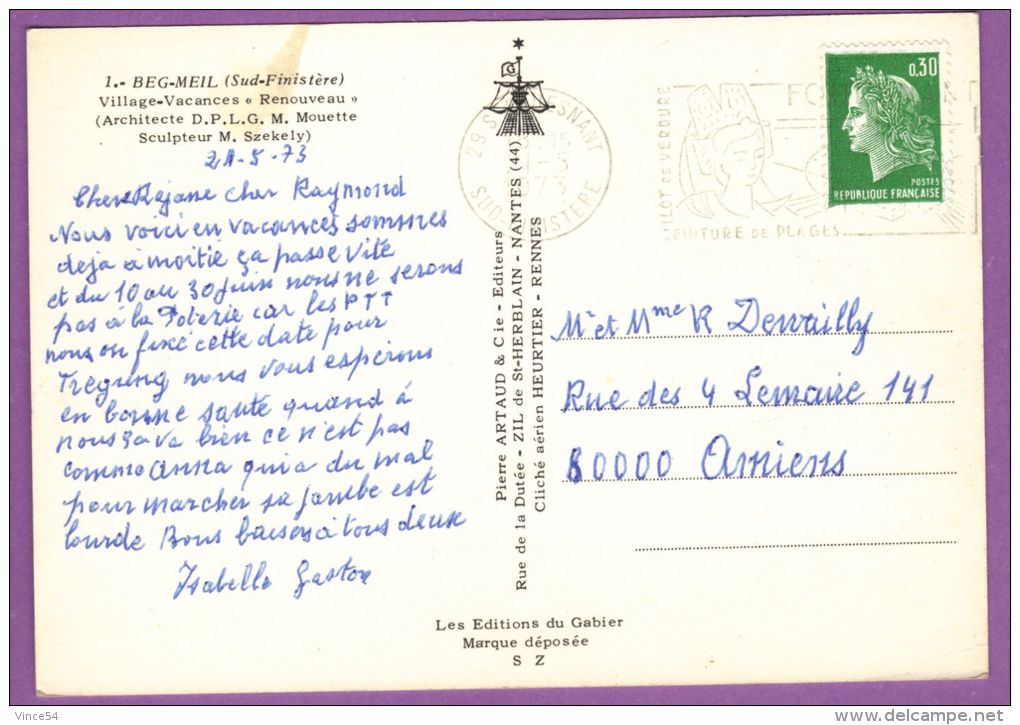 1.- BEG-MEIL (Sud-Finistère)
Village-Vacances « Renouveau »
(Architecte D.P.L.G. M. Mouette
Sculpteur M. Szekely)
21-5-73
Chere Rejane cher Raymond
Nous voici en vacances sommes
deja à moitié ça passe vite
et du 10 au 30 juin nous ne serons
pas à la Poterie car les PTT
nous on fixé cette date pour
Tregung nous vous espérons
en bonne santé quand à
nous ça va bien ce n'est pas
comme Anna qui a du mal
pour marcher sa jambe est
lourde Bons baisers à tous deux
Isabelle Gaston
Pierre ARTAUD & Cie - Editeurs
Rue de la Dutée - ZIL de St-HERBLAIN - NANTES (44)
Cliché aérien HEURTIER - RENNES
SUD FINISTERE
ILOT DE VERDURE
CEINTURE DE PLAGES
0,30
POSTES
REPUBLIQUE FRANÇAISE
Mr et Mme R Dewailly
Rue des 4 Lemaire 141
80000 Amiens
Les Editions du Gabier
Marque déposée
S Z
Vince54
delcampe.net